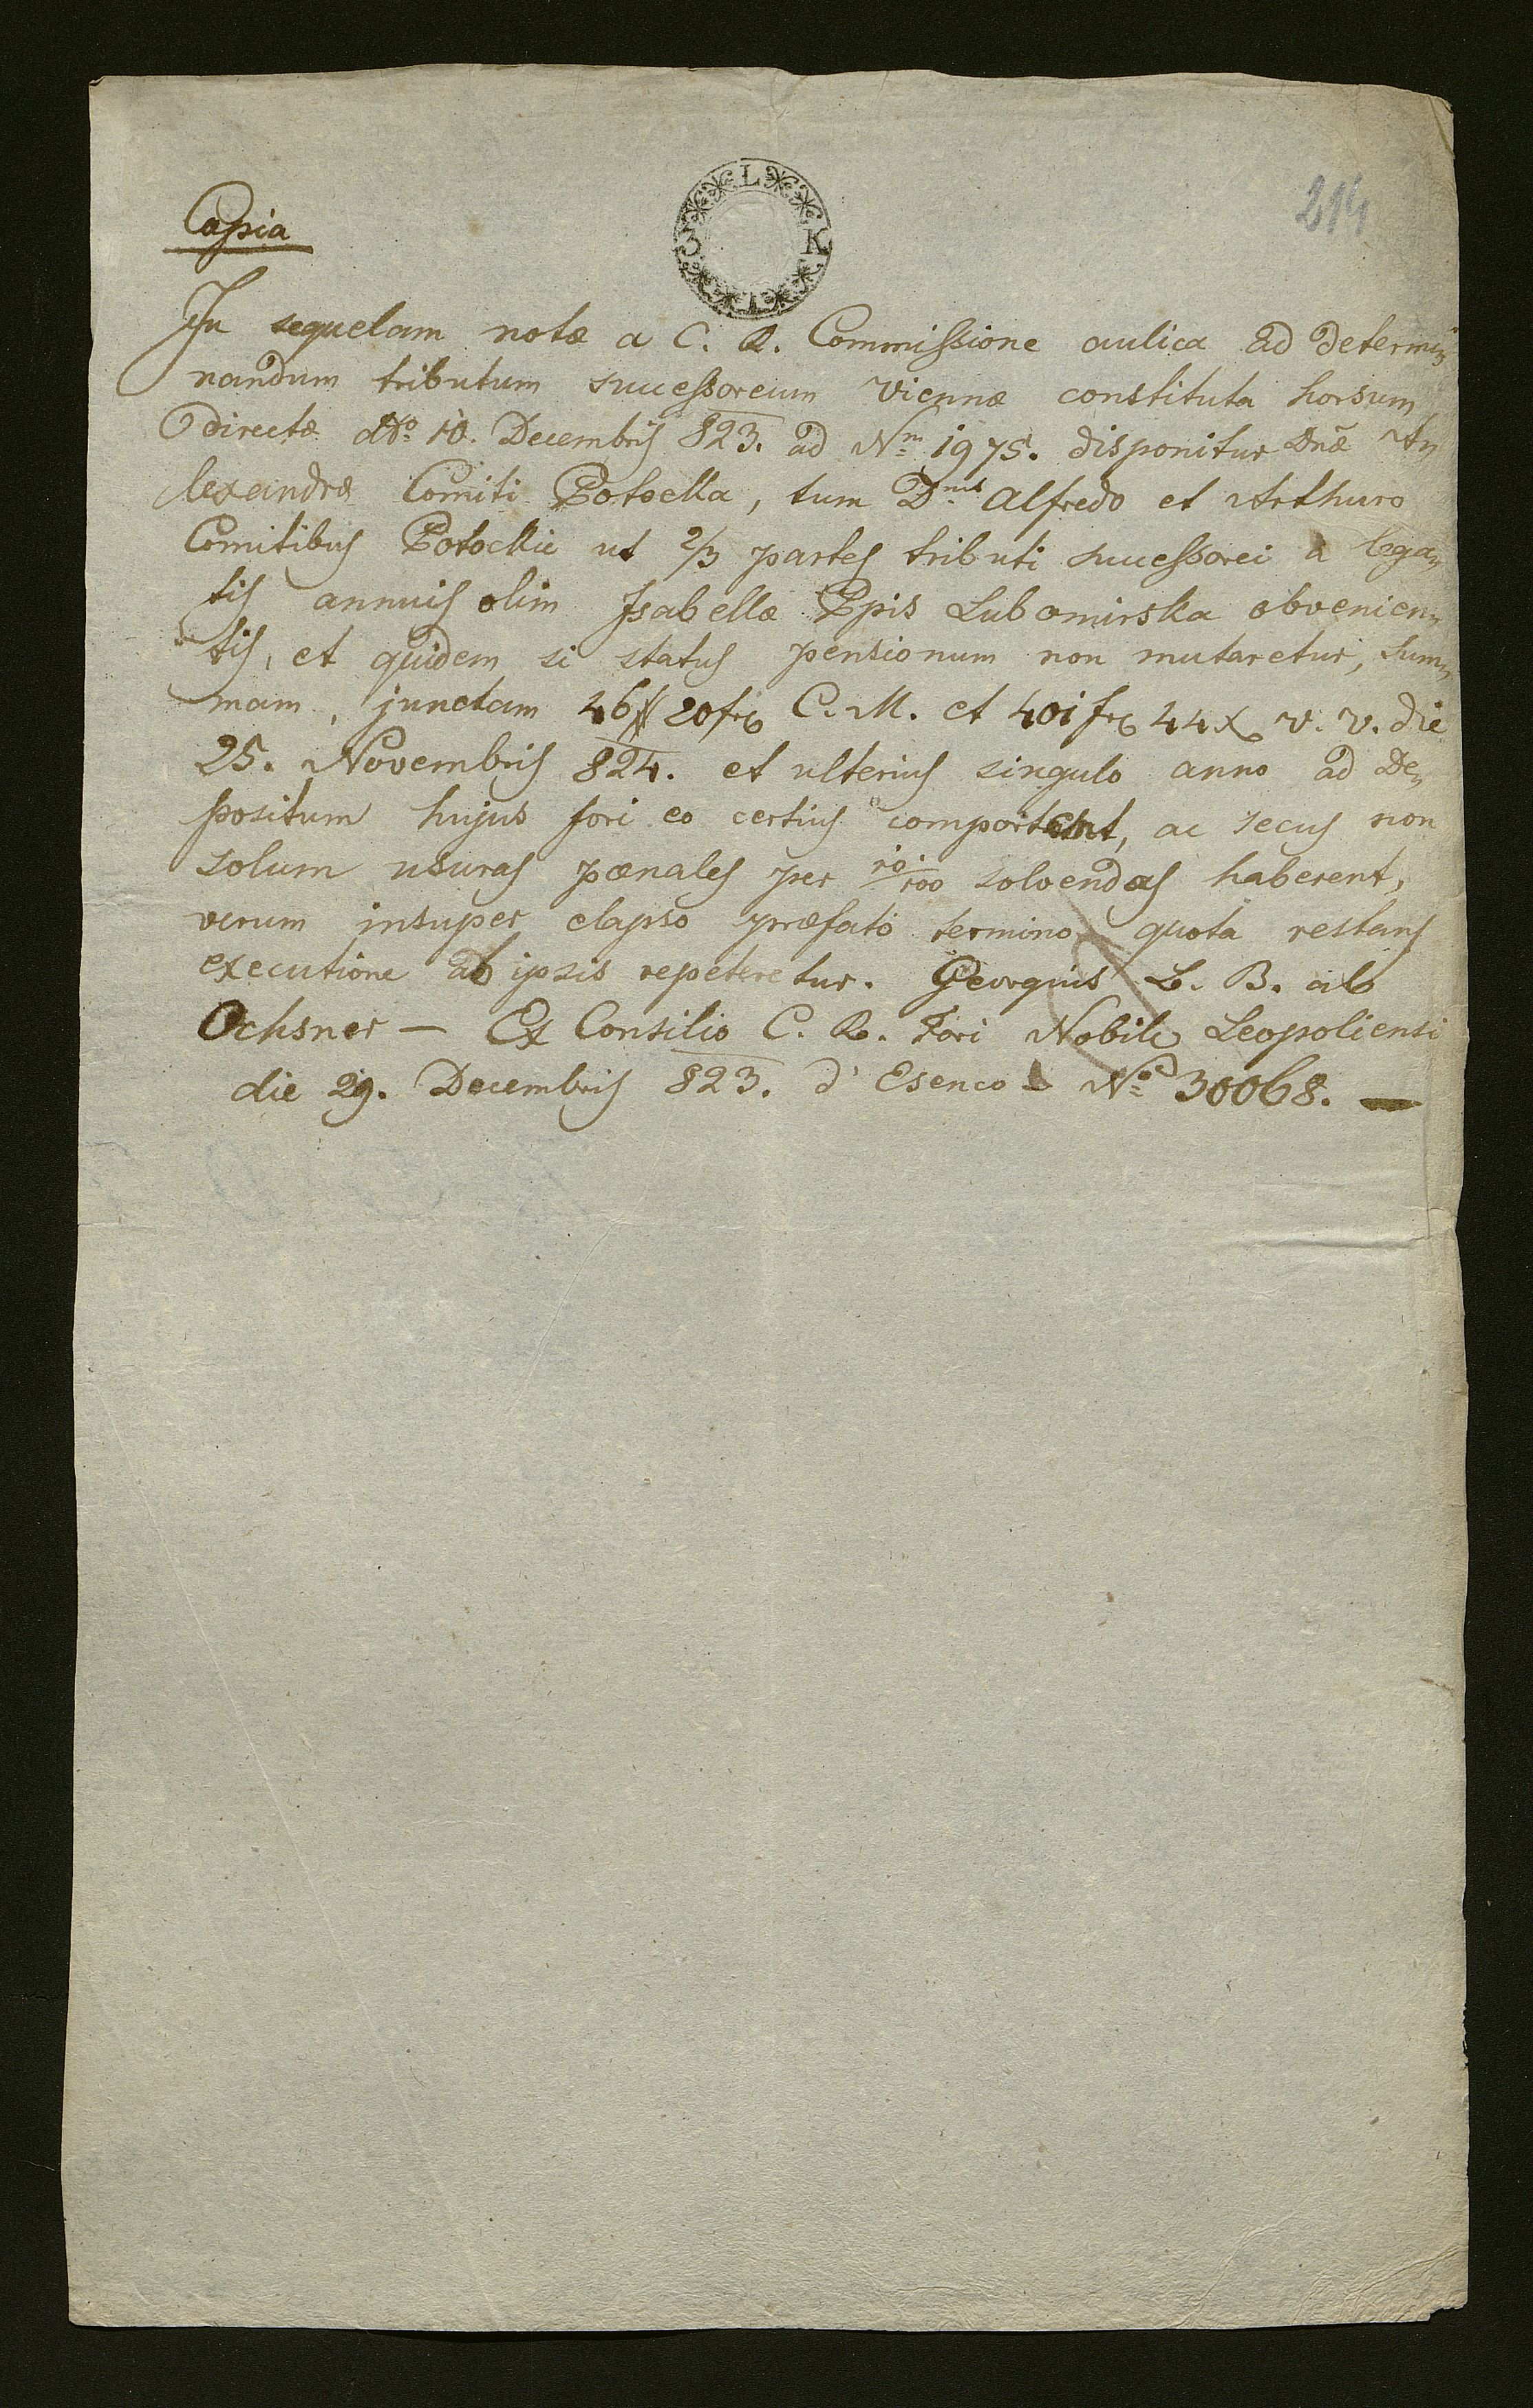 214
L
3 K
Copia
In sequelam notæ a C. R. Commissione aulica ad determi„
nandum tributum successoreum Viennæ constituta horsum
directæ ddto 10. Decembris 823. ad Nrm 1975. disponitur Dnæ A„
lexandræ Comiti Potocka, tum Dnis Alfredo et Arthuro
Comitibus Potockie ut 2/3 partes tributi successorei a lega„
tis annuis olim Isabellæ Ppis Lubomirska obvenien„
tis, et quidem si status pensionum non mutaretur, sum„
mam, junctam 46 20 fr C. M. et 401 fr 44 x v. v. die
25. Novembris 824. et ulterius singulo anno ad De„
positum hujus fori eo certius comportent, ac secus non
solum usuras pœnales per 10/100 solvendas haberent,
verum insuper elapso præfato termino quota restans
executione ab ipsis repeteretur. Georgius L. B. ab
Ochsner — Ex Consilio C. R. Fori Nobil Leopoliensi
die 29. Decembris 823. No 30068. —